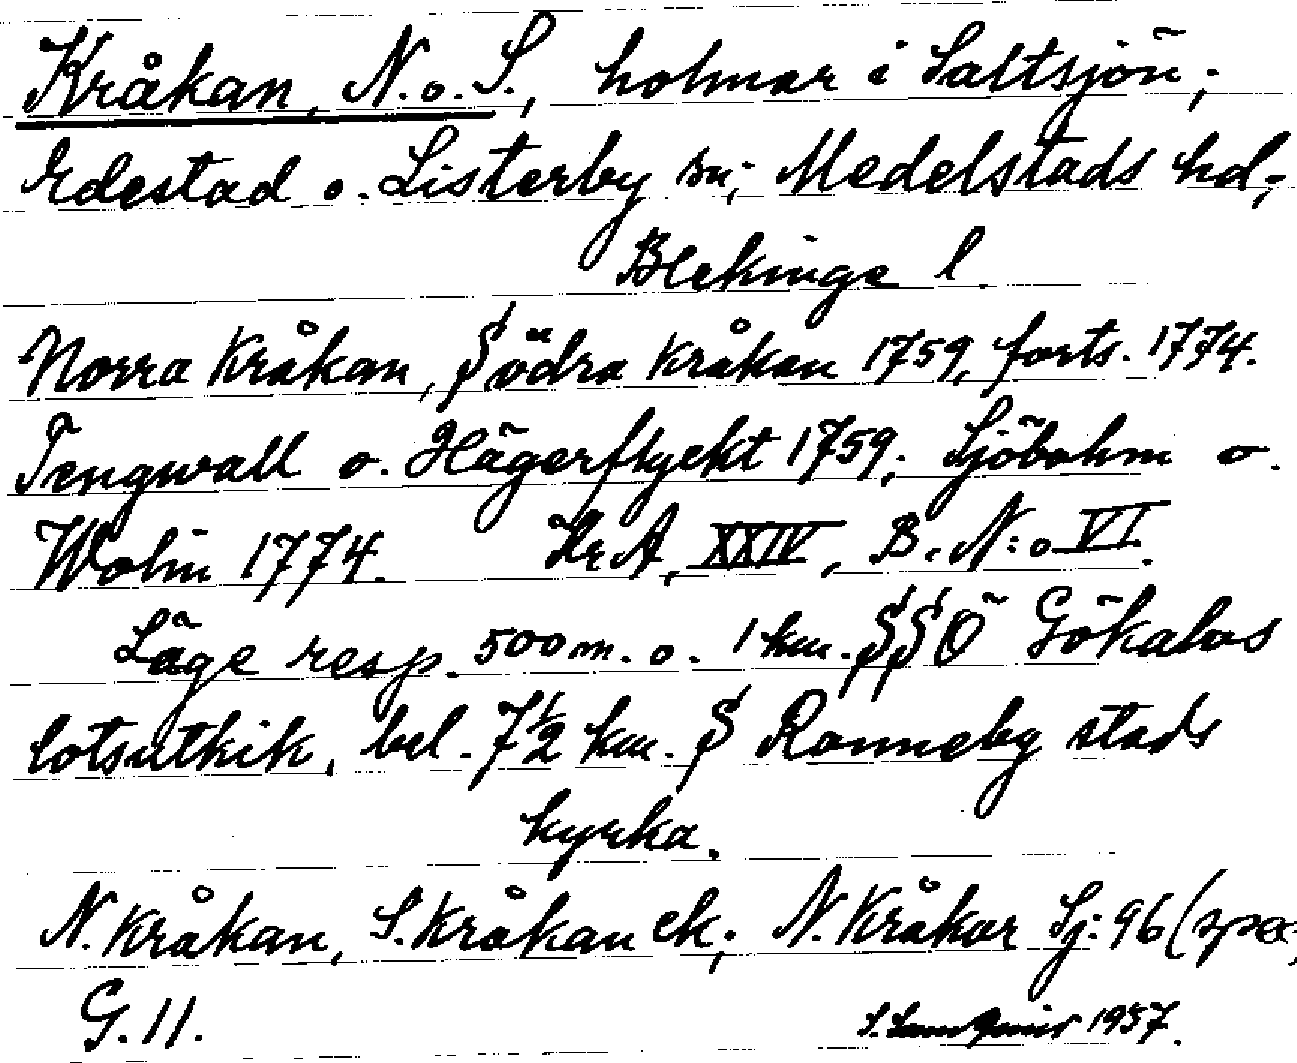 Kråkan, N. o. S., holmar i Saltsjön;
Edestad o. Listerby sn; Medelstads hd,
Blekinge l.
Norra Kråkan, Södra Kråkan 1759, forts. 1774.
Tengwall o. Hägerflyckt 1759; Sjöbohm o.
Wolin 1774. Kr A, XXIV, B. N:o VI.
Läge resp. 500 m. o. 1 km. SSÖ Gökalvs
lotsutkik, bel. 7 1/2 km. S Ronneby stads
kyrka.
N. Kråkan, S. Kråkan ek; N. Kråkor Sj: 96
G. 11. 1957.